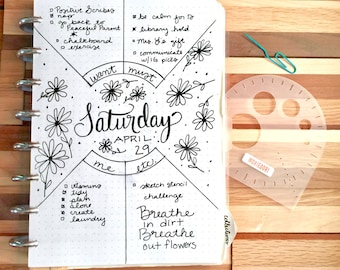 positive Scribes
nap
go back to
Peaceful Parent
chalkboard
exercise
be calm for
library hold
Mrs. gift
communicate
w/ picks
want
must
Saturday
APRIL
29
me
etc.
vitamins
tidy
plan
alone
create
laundry
sketch stencil
challenge
Breathe
in dirt
Breathe
out flowers